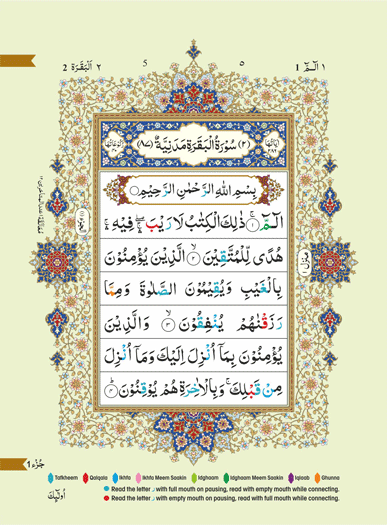 ٢ الٓبَقَرَة 2 5 ٥ ١ الٓـمّٓ 1
(٢) سُوْرَةُ الْبَقَرَةِ مَدَنِيَّةٌ (٨٧)
بِسْمِ اللهِ الرَّحْمٰنِ الرَّحِيْمِ
الٓـمّٓ ۚ﴿١﴾ ذٰلِكَ الْكِتٰبُ لَا رَيْبَ ۛۖ فِيْهِ ۛۚ
هُدًى لِّلْمُتَّقِيْنَ ﴿٢﴾ الَّذِيْنَ يُؤْمِنُوْنَ
بِالْغَيْبِ وَيُقِيْمُوْنَ الصَّلٰوةَ وَمِمَّا
رَزَقْنٰهُمْ يُنْفِقُوْنَ ﴿٣﴾ وَالَّذِيْنَ
يُؤْمِنُوْنَ بِمَآ اُنْزِلَ اِلَيْكَ وَمَآ اُنْزِلَ
مِنْ قَبْلِكَ ۚ وَبِالْاٰخِرَةِ هُمْ يُوْقِنُوْنَ ﴿٤﴾
جُزْء ١ 1
Tafkheem Qalqala Ikhfa Ikhfa Meem Saakin Idghaam Idghaam Meem Saakin Iqlaab Ghunna
اُولٰٓئِكَ
Read the letter ر with full mouth on pausing, read with empty mouth while connecting.
Read the letter ر with empty mouth on pausing, read with full mouth while connecting.